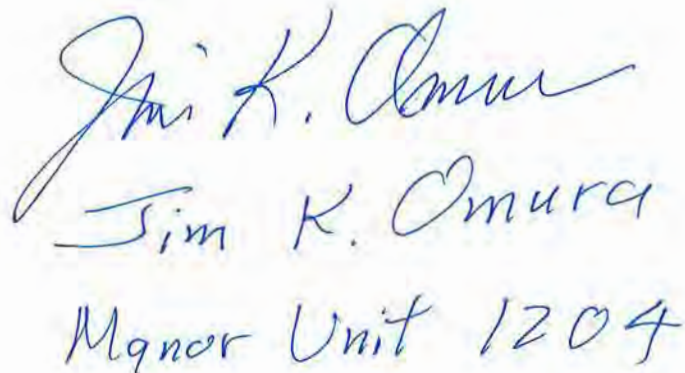 Jim K. Omura
Jim K. Omura
Manor Unit 1204